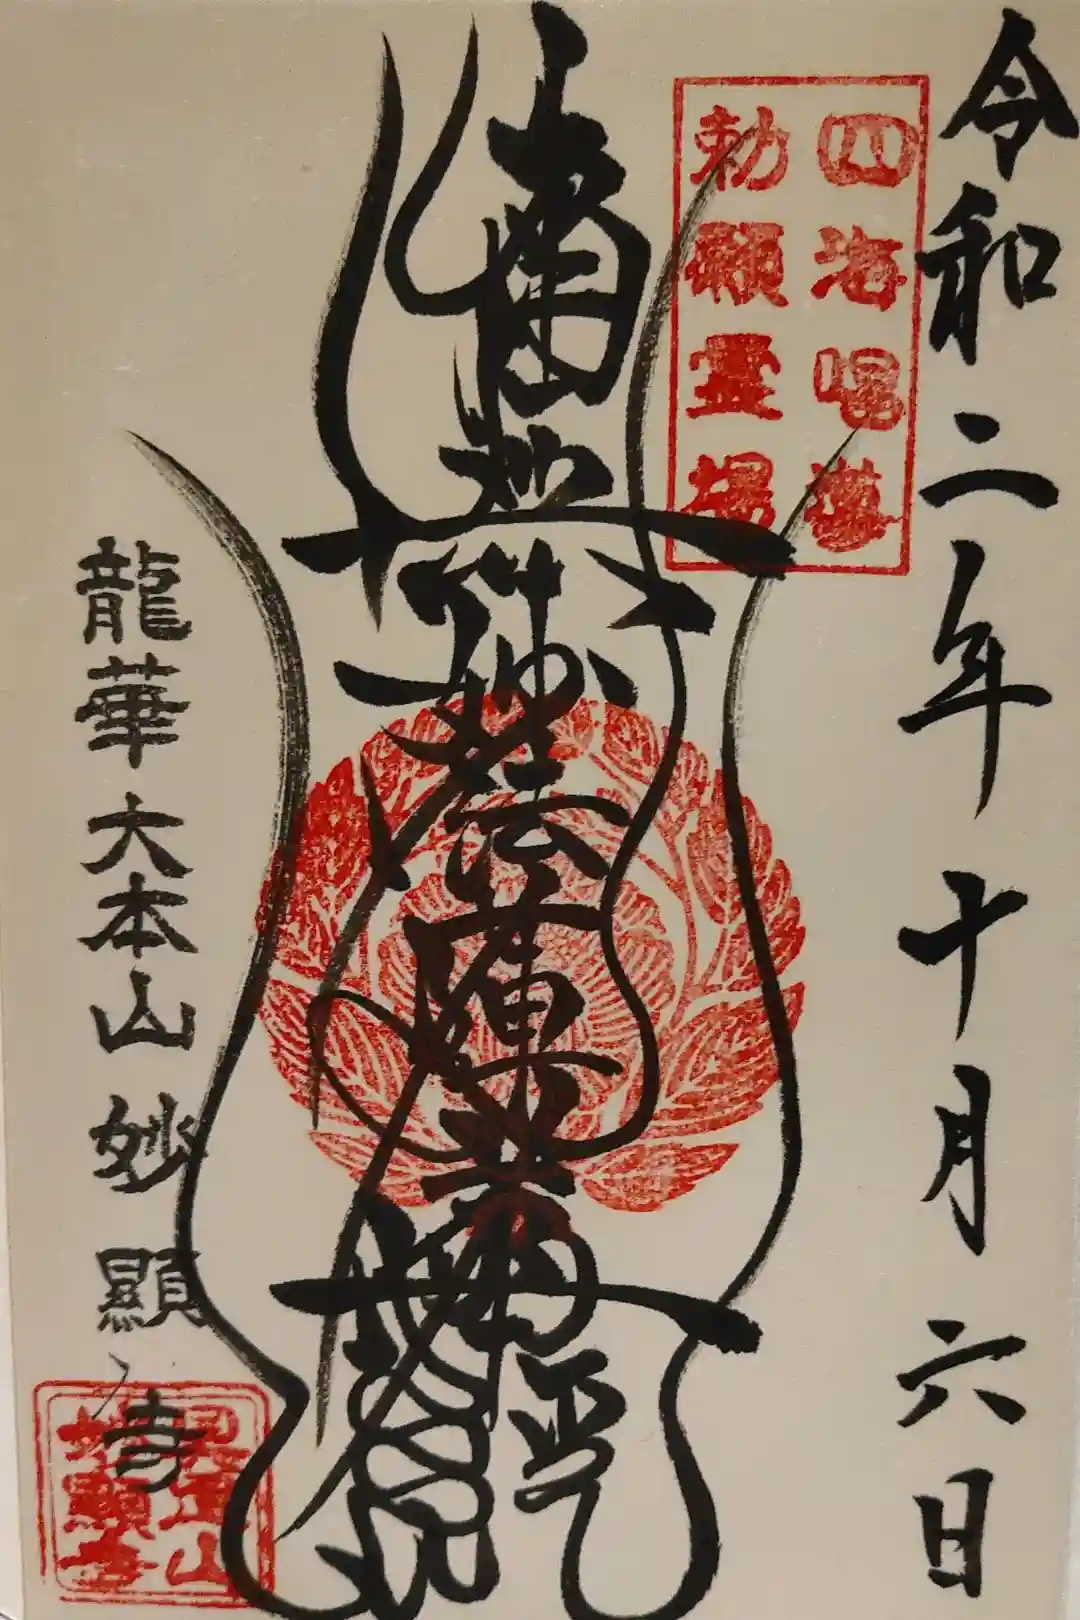 令和二年十月六日
四海唱導
勅願霊場
南無妙法蓮華経
龍華大本山妙顯寺
具足山
妙顯寺